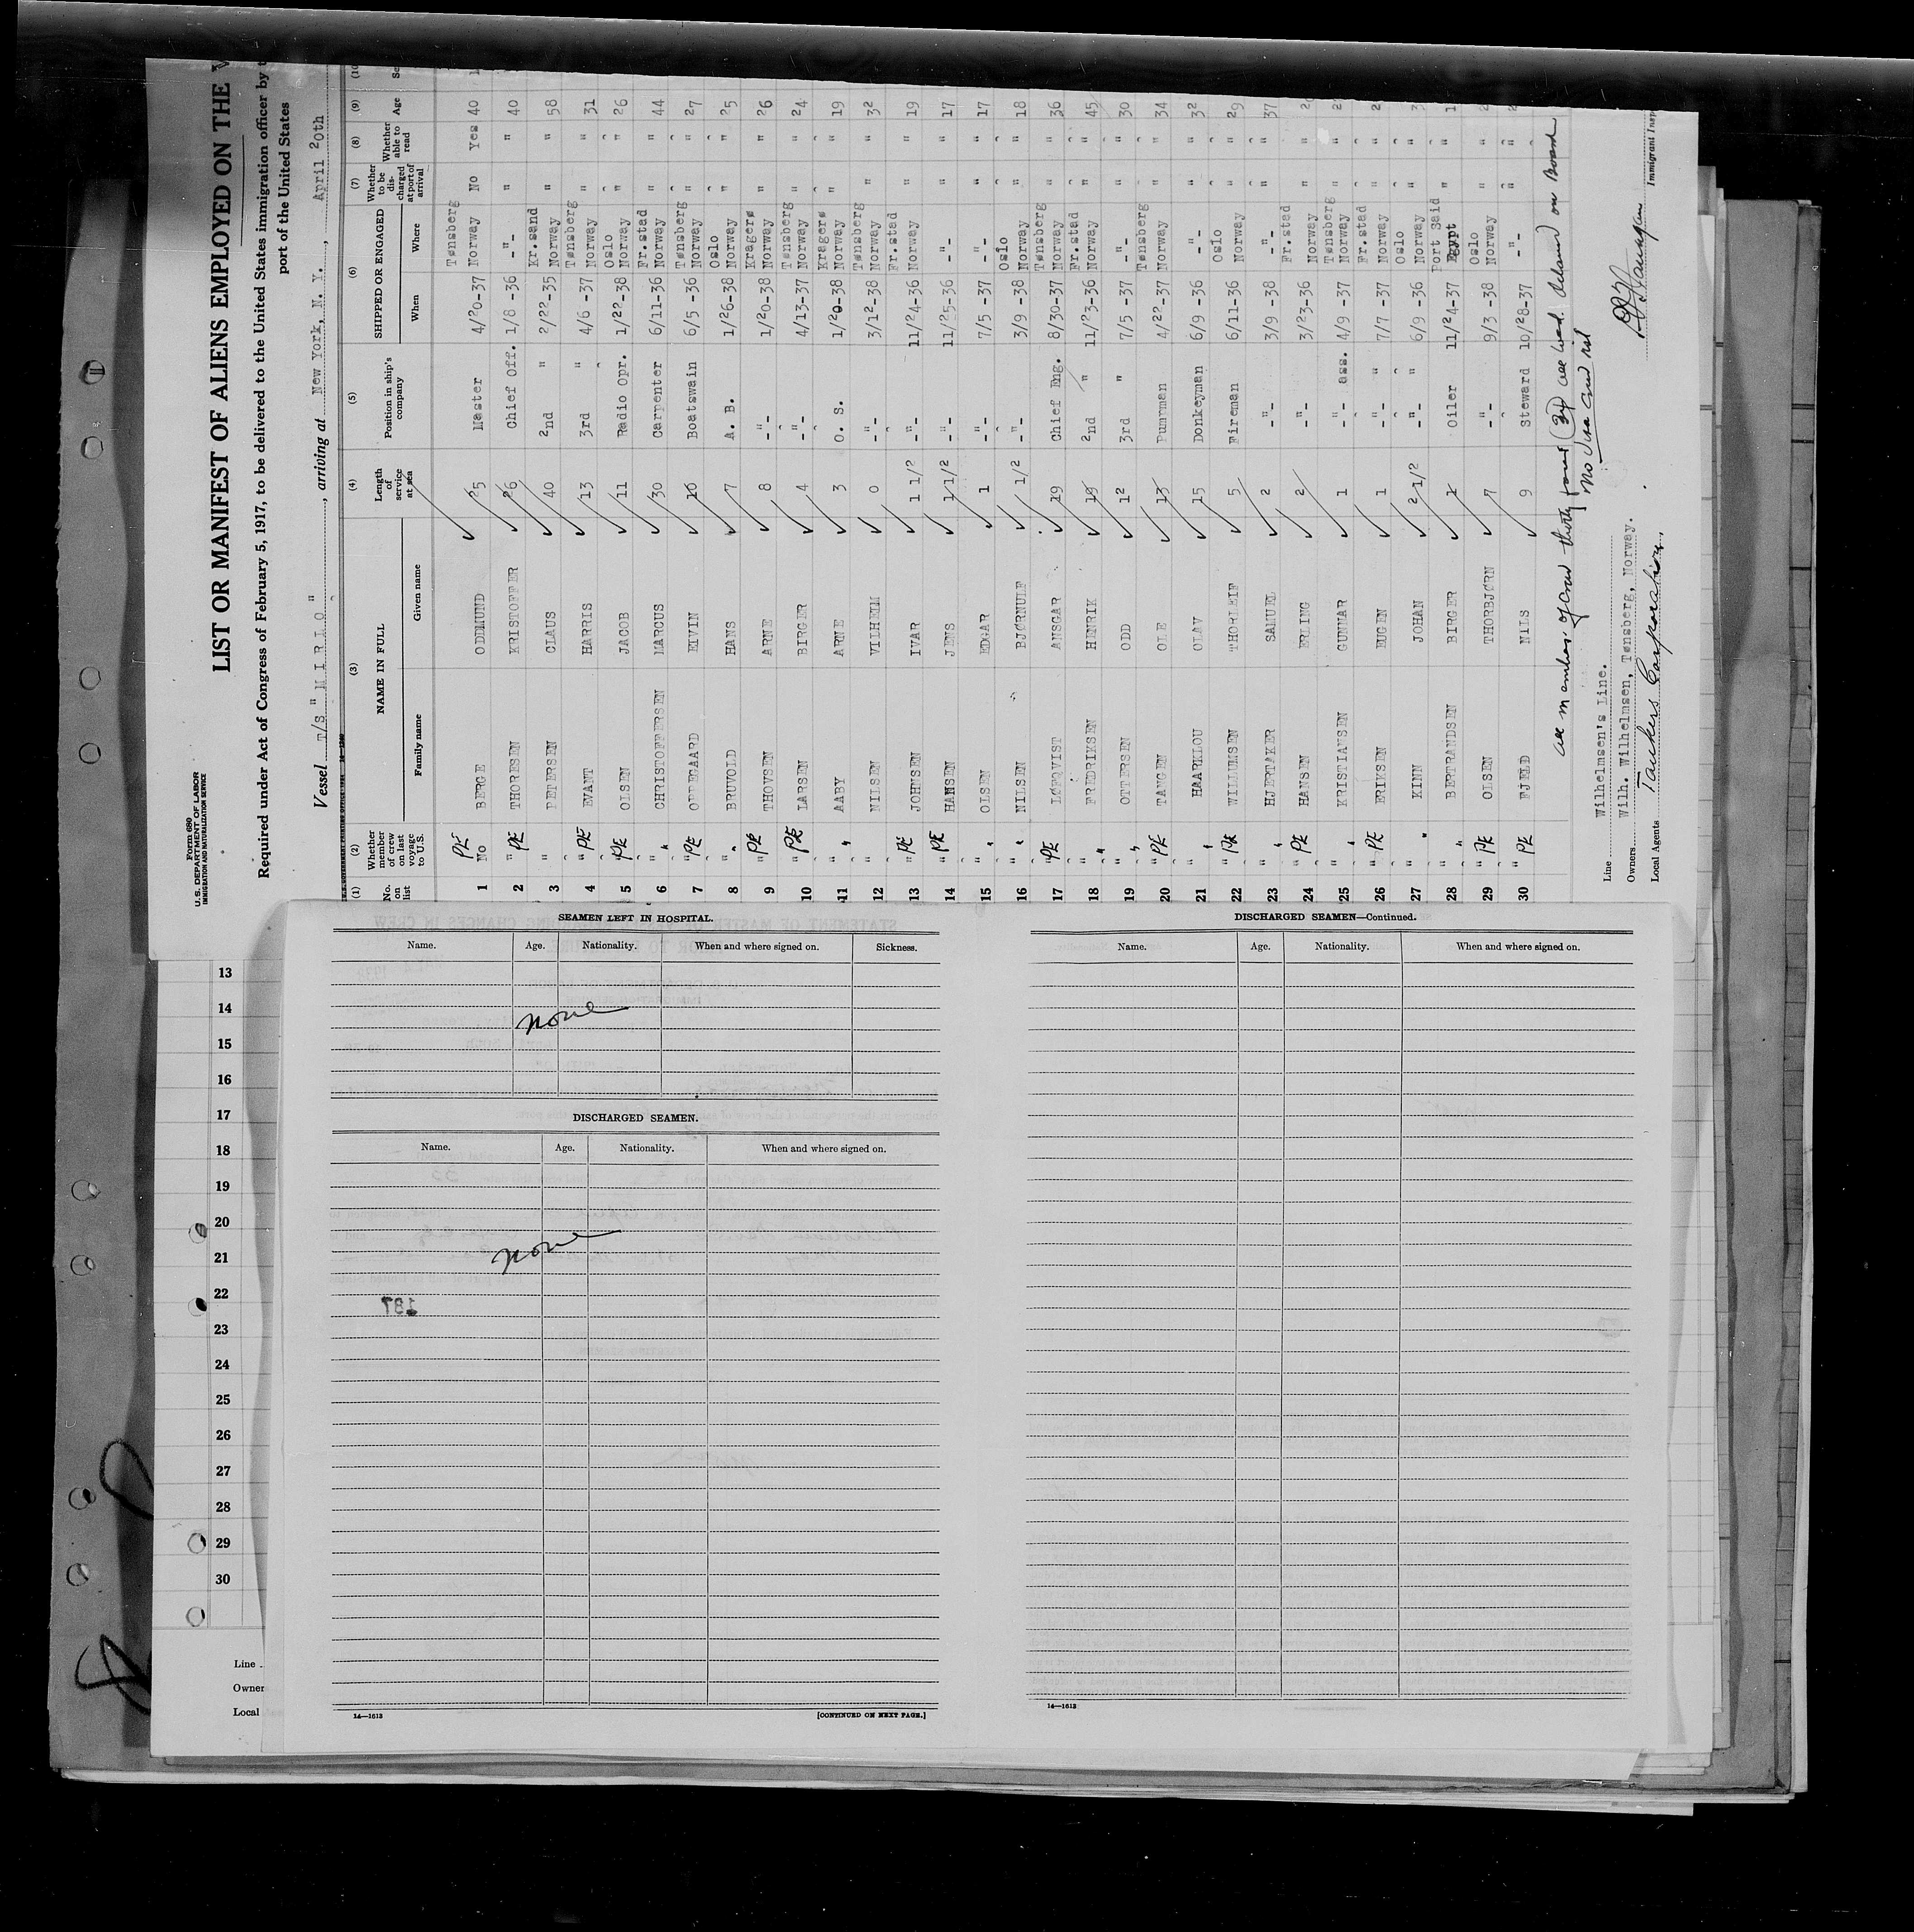 Form 680
U. S. DEPARTMENT OF LABOR
IMMIGRATION AND NATURALIZATION SERVICE
LIST OR MANIFEST OF ALIENS EMPLOYED ON THE
Required under Act of Congress of February 5, 1917, to be delivered to the United States immigration officer by
port of the United States
Vessel T/S "MIRLO", arriving at New York, N. Y., April 20th
(1) (2) (3) (4) (5) (6) (7) (8) (9) (10
No. on list Whether member of crew on last voyage to U.S. NAME IN FULL Length of service at sea Position in ship's company SHIPPED OR ENGAGED Whether to be discharged at port of arrival Whether able to read Age
Family name Given name When Where
1 PE No BERGE ODDMUND 25 Master 4/20-37 Tønsberg Norway No Yes 40
2 " PE THORESEN KRISTOFFER 26 Chief Off. 1/8 -36 -"- " " 40
3 " PETERSEN CLAUS 40 2nd " 2/22-35 Kr.sand Norway " " 58
4 " PE EVANT HARRIS 13 3rd " 4/6 -37 Tønsberg Norway " " 31
5 " PE OLSEN JACOB 11 Radio Opr. 1/22-38 Oslo Norway " " 26
6 " " CHRISTOFFERSEN MARCUS 30 Carpenter 6/11-36 Fr.stad Norway " " 44
7 " PE OPPEGAARD EIVIN 10 Boatswain 6/5 -36 Tønsberg Norway " " 27
8 " " BRUVOLD HANS 7 A. B. 1/26-38 Oslo Norway " " 25
9 " PE THOVSEN ARNE 8 -"- 1/20-38 Kragerø Norway " " 26
10 " PE LARSEN BIRGER 4 -"- 4/13-37 Tønsberg Norway " " 24
11 " " AABY ARNE 3 O. S. 1/20-38 Kragerø Norway " " 19
12 " NILSEN VILHELM 0 -"- 3/12-38 Tønsberg Norway " " 32
13 " PE JOHNSEN IVAR 1 1/2 -"- 11/24-36 Fr.stad Norway " " 19
14 " PE HANSEN JENS 1 1/2 -"- 11/25-36 -"- " " 17
15 " " OLSEN EDGAR 1 -"- 7/5 -37 -"- " " 17
16 " " NILSEN BJØRNULF 1/2 -"- 3/9 -38 Oslo Norway " " 18
17 " PE LØFQVIST ANSGAR 19 Chief Eng. 8/30-37 Tønsberg Norway " " 36
18 " " FREDRIKSEN HENRIK 19 2nd " 11/23-36 Fr.stad Norway " " 45
19 " " OTTERSEN ODD 12 3rd " 7/5 -37 -"- " " 30
20 " PE TANGEN OLE 13 Pumpman 4/22-37 Tønsberg Norway " " 34
21 " " HAARKLOU OLAV 15 Donkeyman 6/9 -36 -"- " " 32
22 " PE WILLUMSEN THORLEIF 5 Fireman 6/11-36 Oslo Norway " " 29
23 " " HJERTAKER SAMUEL 2 -"- 3/9 -38 -"- " " 37
24 " PE HANSEN ERLING 2 -"- 3/23-36 Fr.stad Norway " "
25 " " KRISTIANSEN GUNNAR 1 -"- ass. 4/9 -37 Tønsberg Norway " "
26 " PE ERIKSEN EUGEN 1 -"- " 7/7 -37 Fr.stad Norway " "
27 " " KINN JOHAN 2 1/2 -"- " 6/9 -36 Oslo Norway " "
28 " " BERTRANDSEN BIRGER 1 Oiler 11/24-37 Port Said Egypt " "
29 " PE OLSEN THORBJØRN 7 -"- 9/3 -38 Oslo Norway " "
30 " PE FJELD NILS 9 Steward 10/28-37 -"- " "
all members of crew thirty four (34) on Board
no visa crew list
Line Wilhelmsen's Line.
Owners Wilh. Wilhelmsen, Tønsberg, Norway.
Local Agents Tankers Corporation.
Immigrant Insp
SEAMEN LEFT IN HOSPITAL.
Name. Age. Nationality. When and where signed on. Sickness.
none
DISCHARGED SEAMEN.
Name. Age. Nationality. When and where signed on.
none
187
14—1613
[CONTINUED ON NEXT PAGE.]
DISCHARGED SEAMEN—Continued.
Name. Age. Nationality. When and where signed on.
14—1613
13
14
15
16
17
18
19
20
21
22
23
24
25
26
27
28
29
30
Line
Owner
Local